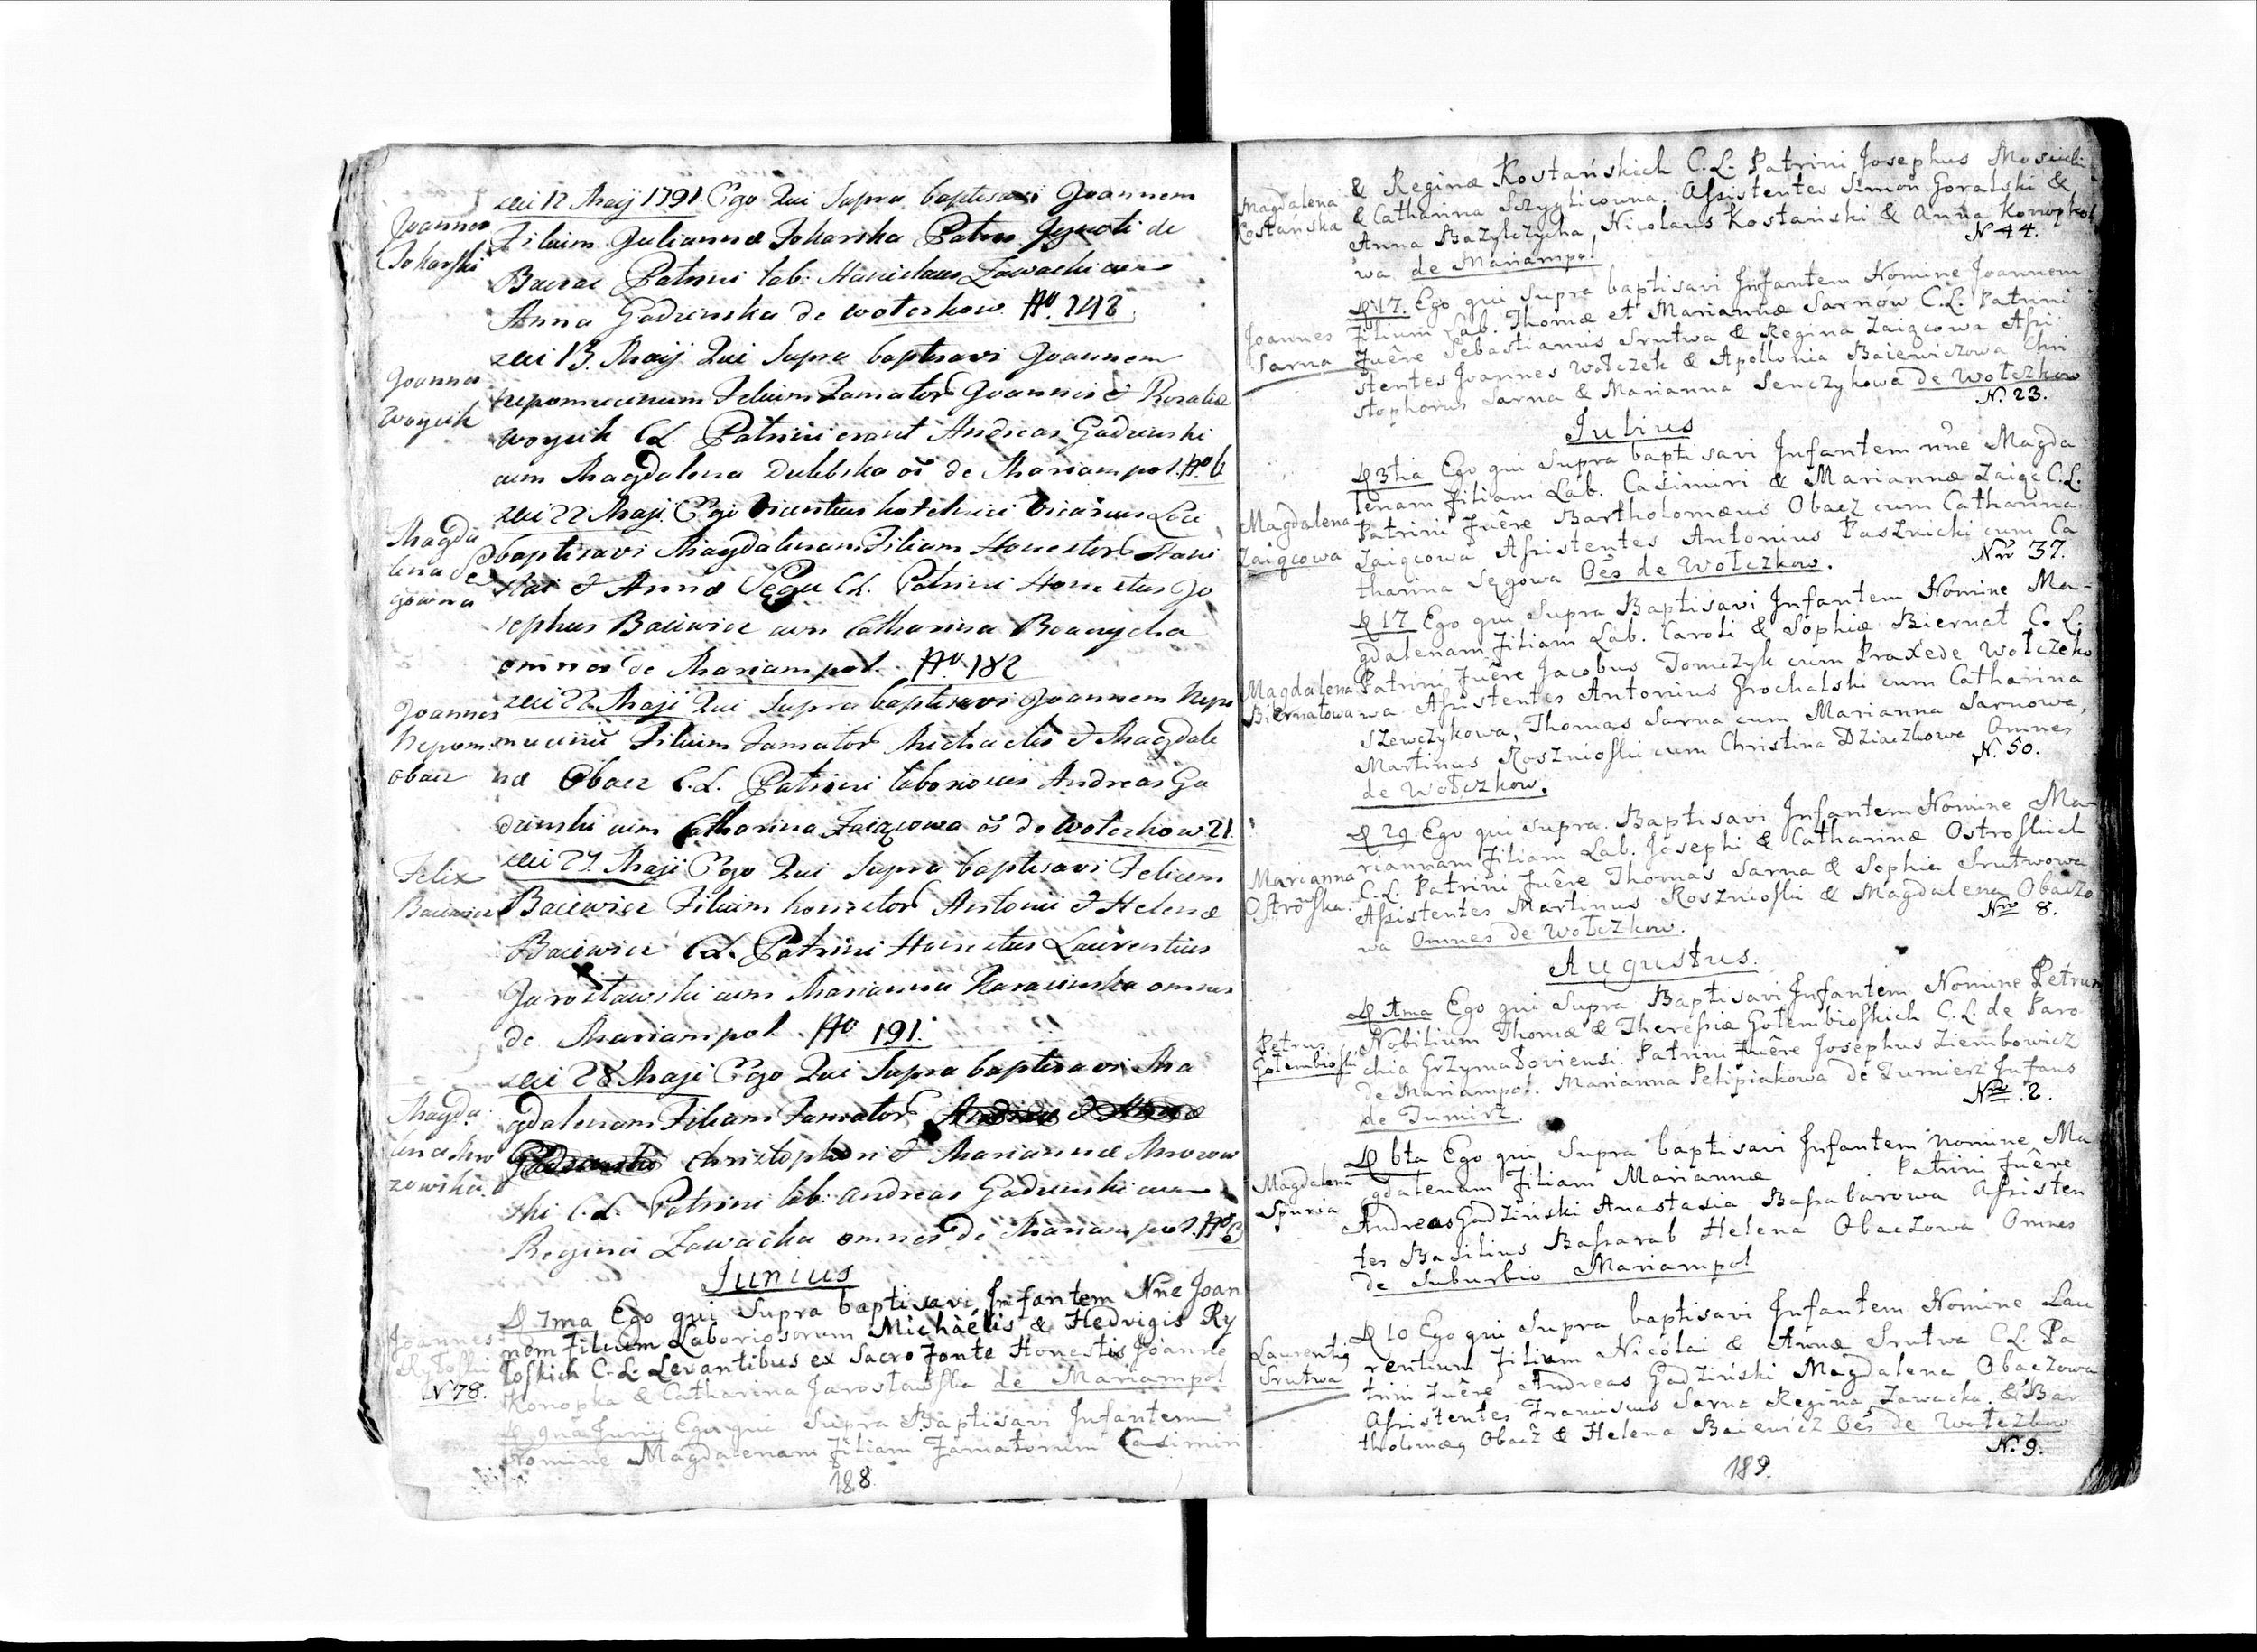 Joannes
Tokarski
Die 12 Maij 1791. Ego Qui Supra baptisavi Joannem
Filium Julianna Tokarska Patris Ignoti de
Patrini lab: Stanislaus Zawacki cum
Anna Gadzinska de Wołczkow No. 148
Joannes
Woycik
Die 13. Maij Qui Supra baptisavi Joannem
Nepomucenum Filium Famator Joannis & Rosaliæ
Woycik C.L. Patrini erant Andreas Gadzinski
cum Magdalena Dulebska os de Mariampol. No 6
Magda
lena Sę
gowna
Die 22 Maji. Ego Vicarius Loci
baptisavi Magdalenam Filiam Honestor Stani
slai & Annæ Sęgu C.L. Patrini Honestus Jo
sephus Baiewicz cum Catharina
omnes de Mariampol. No. 182
Joannes
Nepom:
Obacz
Die 22 Maji Qui Supra baptisavi Joannem Nepo
mucenu Filium Famator Michaelis & Magdale
næ Obacz C.L. Patrini laboriosus Andreas Ga
dzinski cum Catharina Zaiącowa os de Wołczkow 21.
Felix
Baiewicz
Die 27. Maji Ego Qui Supra baptisavi Felicem
Baiewicz Filium honestor Antonii & Helenæ
Baiewicz C.L. Patrini Honestus Laurentius
Jarosławski cum Marianna omnes
de Mariampol. No 191.
Magda:
lena Mro
zowska.
Die 28 Maji Ego Qui Supra baptisavi Ma
gdalenam Filiam Famator
Christophori & Mariannæ Mrozow
ski C.L. Patrini lab: Andreas Gadzinski cum
Regina Zawacka omnes de Mariampol. No
Junius
Joannes
Rytoski
N 78.
D 7ma Ego qui Supra baptisavi Infantem Nne Joan
nem Filium Laboriosorum Michaelis & Hedvigis Ry
toskich C.L. Levantibus ex Sacro Fonte Honestis Joanne
Konopka & Catharina Jarosławska de Mariampol
D 9na Junij Ego qui Supra Baptisavi Infantem
Nomine Magdalenam Filiam Famatorum Casimiri
188
Magdalena
Kostańska
& Reginæ Kostańskich C.L. Patrini Josephus
& Catharina Szzyglicowna. Assistentes Simon Goralski &
Anna Bazylczycha, Nicolaus Kostański & Anna Konopko
wa de Mariampol
N 44.
Joannes
Sarna
D 17. Ego qui Supra baptisavi Infantem Nomine Joannem
Filium Lab. Thomæ et Mariannæ Sarnow C.L. Patrini
Fuêre Sebastianus Srutwa & Regina Zaiącowa Assi
stentes Joannes Wołczek & Apollonia Baiewiczowa Chri
stophorus Sarna & Marianna Senczykowa de Wołczkow
N. 23.
Julius
Magdalena
Zaiącowa
D 3tia Ego qui Supra baptisavi Infantem nne Magda
lenam Filiam Lab. Casimiri & Mariannæ Zaiąc C.L.
Patrini Fuêre Bartholomæus Obacz cum Catharina
Zaiącowa Assistentes Antonius Pasznicki cum Ca
tharina Sęgowa Oês de Wołczkow.
Nro 37.
Magdalena
Biernatowa
D 17 Ego qui Supra Baptisavi Infantem Nomine Ma-
gdalenam Filiam Lab. Caroli & Sophiæ Biernat C.L.
Patrini Fuêre Jacobus Tomczyk cum Praxede Wołczko
wa Assistentes Antonius Grochalski cum Catharina
Szewczykowa, Thomas Sarna cum Marianna Sarnowa,
Martinus Roszniosski cum Christina Dziaczkowa Omnes
de Wołczkow.
N. 50.
Marianna
Ostrowska.
D 29. Ego qui Supra. Baptisavi Infantem Nomine Ma-
riannam Filiam Lab. Josephi & Catharinæ Ostrosskich
C.L. Patrini Fuêre Thomas Sarna & Sophia Srutwowa
Assistentes Martinus Roszniosski & Magdalena Obaczo
wa Omnes de Wołczkow.
Nro 8.
Augustus.
Petrus
Gołembiosski
Ego qui Supra Baptisavi Infantem Nomine Petrum
Nobilium Thomæ & Theressiæ Gołembiosskich C.L. de Paro
chia Grzymałoviensi. Patrini Fuêre Josephus Ziembowicz
de Mariampol. Marianna Pelipiakowa de Tumierz Infans
de Tumirz.
Nro. 2.
Magdalena
Spuria
D 6ta Ego qui Supra baptisavi Infantem nomine Ma
gdalenam Filiam Mariannæ Patrini Fuêre
Andreas Gadziński Anastasia Bassabarowa Assisten
tes Basilius Bassarab Helena Obaczowa Omnes
de Suburbio Mariampol
Laurenti9
Srutwa
D 10 Ego qui Supra baptisavi Infantem Nomine Lau
rentium Filium Nicolai & Annæ Srutwa C.L. Pa
trini Fuêre Andreas Gadziński Magdalena Obaczowa
Assistentes Franciscus Sarna Regina Zawacka. & Bar
tholomæ9 Obacz & Helena Baiewicz Oes de Wołczkow
N. 9.
189.